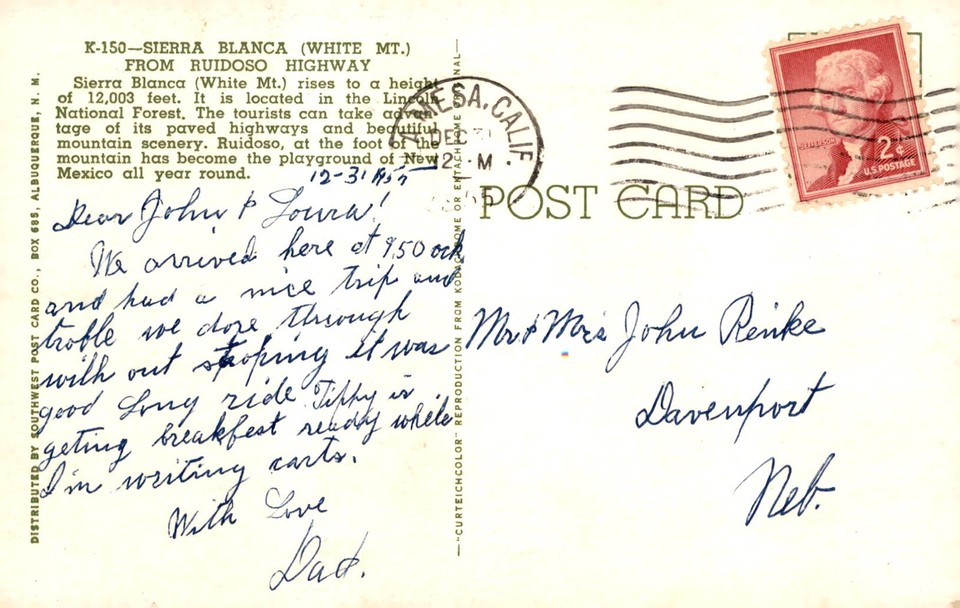 K-150—SIERRA BLANCA (WHITE MT.)
FROM RUIDOSO HIGHWAY
Sierra Blanca (White Mt.) rises to a height
of 12,003 feet. It is located in the Lincoln
National Forest. The tourists can take advan-
tage of its paved highways and beautiful
mountain scenery. Ruidoso, at the foot of the
mountain has become the playground of New
Mexico all year round.
DISTRIBUTED BY SOUTHWEST POST CARD CO., BOX 685, ALBUQUERQUE, N. M.
12-31 195
Dear John & Loura!
We arrived here at 9.50 ock
and had a nice trip and
troble we dore through
with out stoping it was
good Long ride Tippy is
geting breakfest ready while
I'm writing carts.
With Love
Dad.
"CURTEICHCOLOR" REPRODUCTION FROM KODACHROME OR EKTACHROME ORIGINAL
MESA, CALIF
DEC 31
12 M
POST CARD
JEFFERSON
2¢
U.S. POSTAGE
Mr & Mrs John Renke
Davenport
Neb.